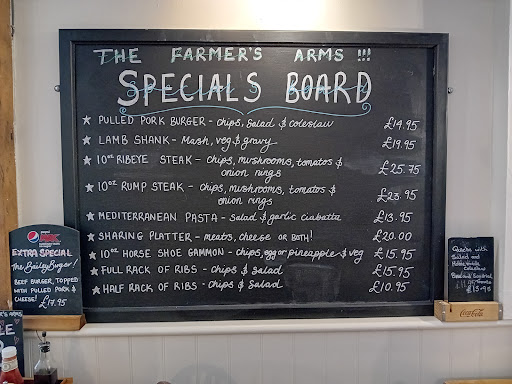 THE FARMER'S ARMS !!!
SPECIALS BOARD
★ PULLED PORK BURGER - chips, salad & coleslaw £14.95
★ LAMB SHANK - Mash, veg & gravy £19.95
★ 10oz RIBEYE STEAK - chips, mushrooms, tomatos & onion rings £25.75
★ 10oz RUMP STEAK - chips, mushrooms, tomatos & onion rings £23.95
★ MEDITERRANEAN PASTA - Salad & garlic ciabatta £13.95
★ SHARING PLATTER - meats, cheese or BOTH! £20.00
★ 10oz HORSE SHOE GAMMON - chips, egg or pineapple & veg £15.95
★ FULL RACK OF RIBS - chips & salad £15.95
★ HALF RACK OF RIBS - chips & salad £10.95
pepsi
MAX
EXTRA SPECIAL
The Bailey Burger!
BEEF BURGER, TOPPED
WITH PULLED PORK &
CHEESE! £17.95
Quiche with
Salad and
coleslaw
£13.95
Coca-Cola